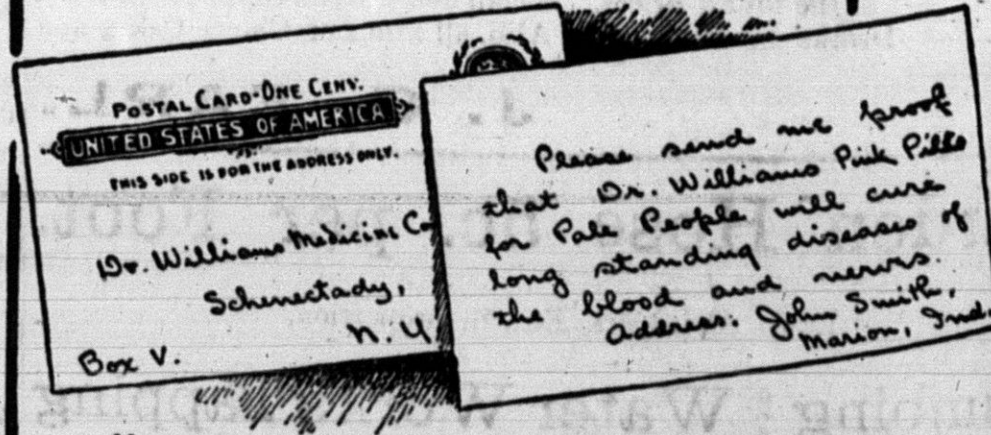 POSTAL CARD-ONE CENT.
UNITED STATES OF AMERICA
THIS SIDE IS FOR THE ADDRESS ONLY.
Dr. Williams Medicine Co
Schenectady,
N. Y
Box V.
Please send me proof
that Dr. Williams Pink Pills
for Pale People will cure
long standing diseases of
the blood and nerves.
Address: John Smith,
Marion, Ind.